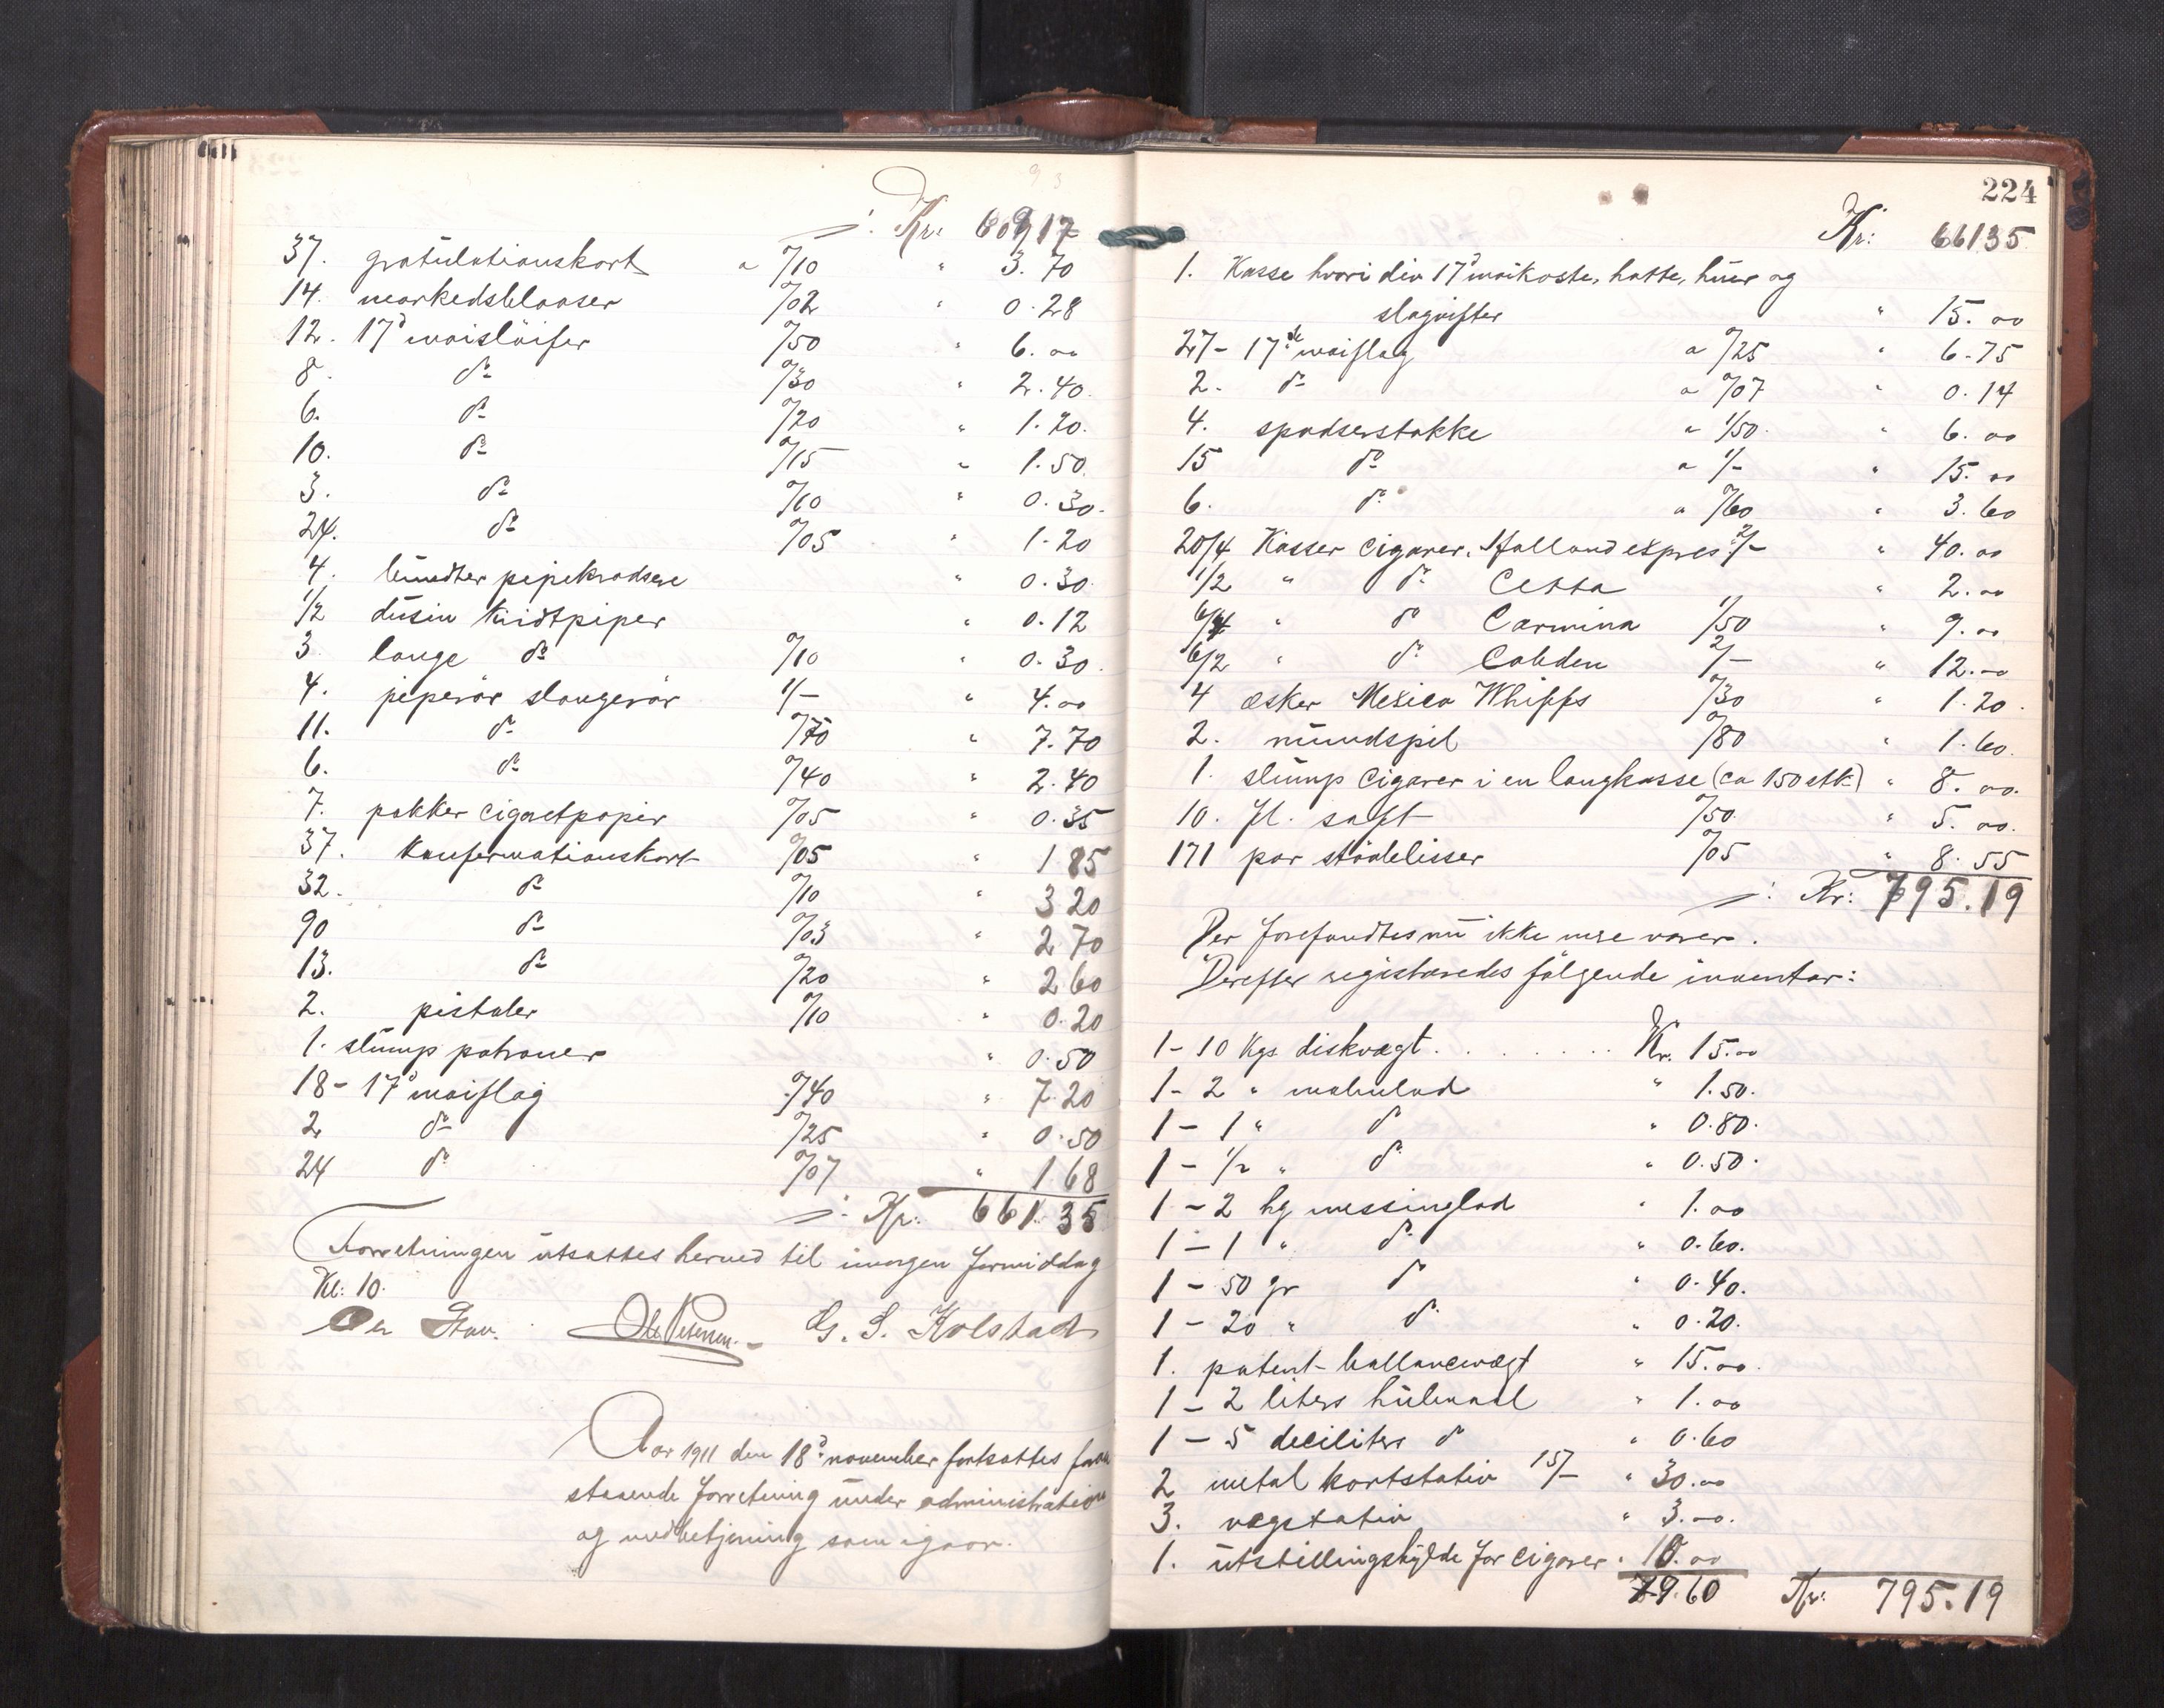 ∴ Kr. 609 17
37. gratulationskort a 0/10 " 3. 70
14. markedsblaaser 0/02 " 0.28
12. 17d maislöifer 0/50 " 6. 00
8. do 0/30 " 2.40.
6. do 0/20 " 1.20.
10. do 0/15 " 1.50.
3. do 0/10 " 0.30.
24. do 0/05 " 1.20
4. bundter pipekradsere " 0.30.
1/2 dusin kridtpiper " 0.12
3 lange do 0/10 " 0.30.
4. piperör slangerör 1/- " 4.00
11. do 0/70 " 7.70
6. do 0/40 " 2.40
7. pakker cigaretpapir 0/05 " 0.35
37. Konfirmationskort 0/05 " 1 85
32. do 0/10 " 3 20
90 do 0/03 " 2 70
13. do 0/20 " 2 60
2. pistoler 0/10 " 0.20
1. slump patroner " 0.50
18- 17d maiflag 0/40 " 7.20
2. do 0/25 " 0.50
24 do 0/07 " 1 68
∴ Kr. 661. 35
Forretningen utsattes herved til imorgen formiddag
Kl: 10.
Ole Petersen. G. S. Kolstad
Aar 1911 den 18d november fortsattes foran
staaende forretning under administration
og medbetjening som igaar.
224
Kr: 661 35
1. Kasse hvori div 17d maikoste, hatte, huer og
slagvifter " 15. 00
27- 17de maiflag a 0/25 " 6.75
2. do a 0/07 " 0.14
4. spadserstokke a 1/50. " 6. 00
15 do a 1/- " 15. 00
6. do a 0/60 " 3. 60
20/4 Kasser Cigarer. Hollandexpres 2/- " 40. 00
1/2 " do Cessa " 2.00
6/4 " do Carmina 1/50 " 9.00
6/2 " do Cobden 2/- " 12.00
4 æsker Mexico Whiffs 0/30 " 1.20.
2. mundspil 0/80 " 1.60.
1. slump Cigarer i en langkasse (ca 150 stk) " 8. 00.
10. fl. saft 0/50. " 5. 00.
171 par stövlelisser 0/05 " 8. 55
∴ Kr: 795.19
Der forefandtes nu ikke mere varer.
Derefter registreredes følgende inventar:
1- 10 Kgs diskvægt. . . . . . . . Kr. 15.00
1- 2 " malmlod " 1.50.
1 - 1 " do " 0.80.
1 - 1/2 " do " 0.50.
1 - 2 hg messinglod " 1.00
1 - 1 " do " 0.60.
1 - 50 gr do " 0.40.
1 - 20 " do " 0.20.
1. patent-ballancevægt " 15.00.
1 - 2 liters hulmaal " 1.00
1 - 5 deciliters do " 0.60
2 metal kortstativ 15/- " 30.00
3. vægstativ " 3.00.
1. utstillingshylde for cigarer " 10.00
79.60 Kr. 795.19